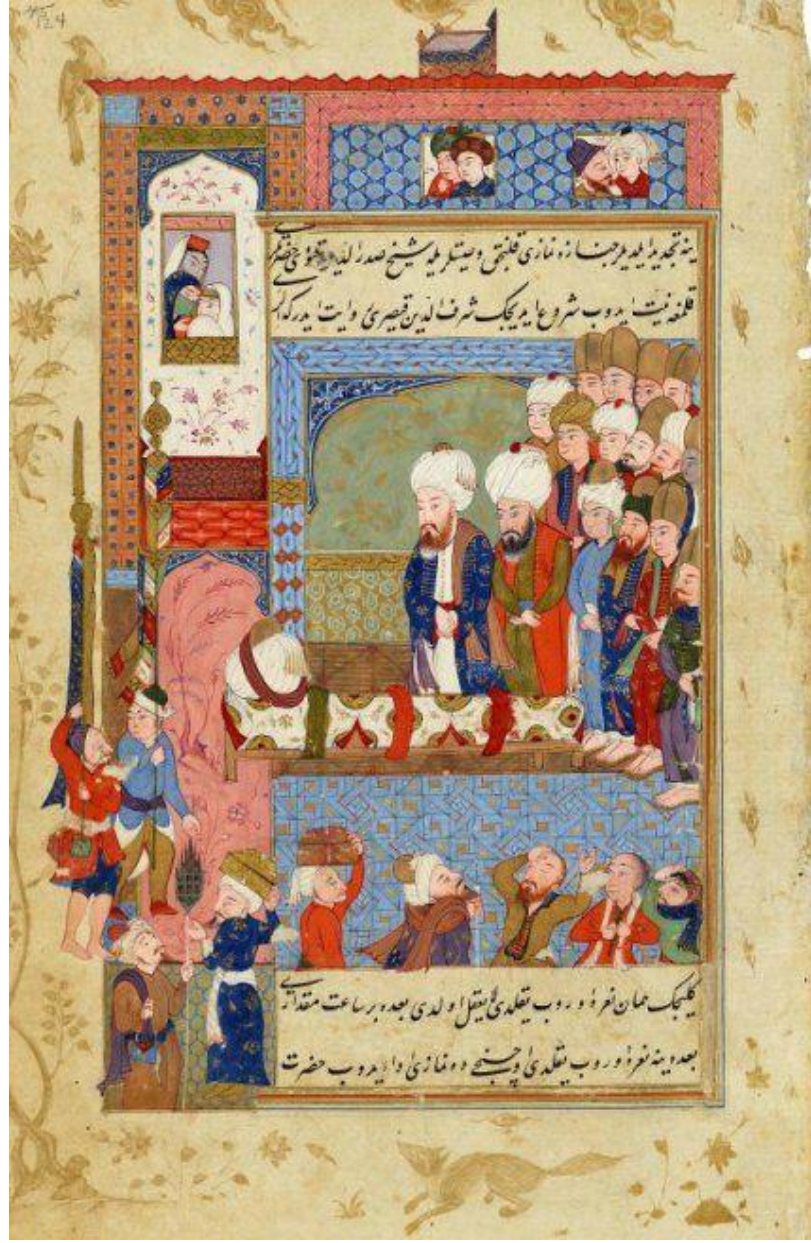 124
ینه تجدید ایلدیلر جنازه نمازی قلنجق وصیتلریله شیخ صدر الدین قنوی
قلمغه نیت ایدوب شروع ایدیجک شرف الدین قیصری روایت ایدرکه
کلیجک همان نعره اوروب یقلدی لایعقل اولدی بعده بر ساعت مقداری
بعده ینه نعره اوروب یقلدی اوچنجیده نمازی ادا ایدوب حضرت